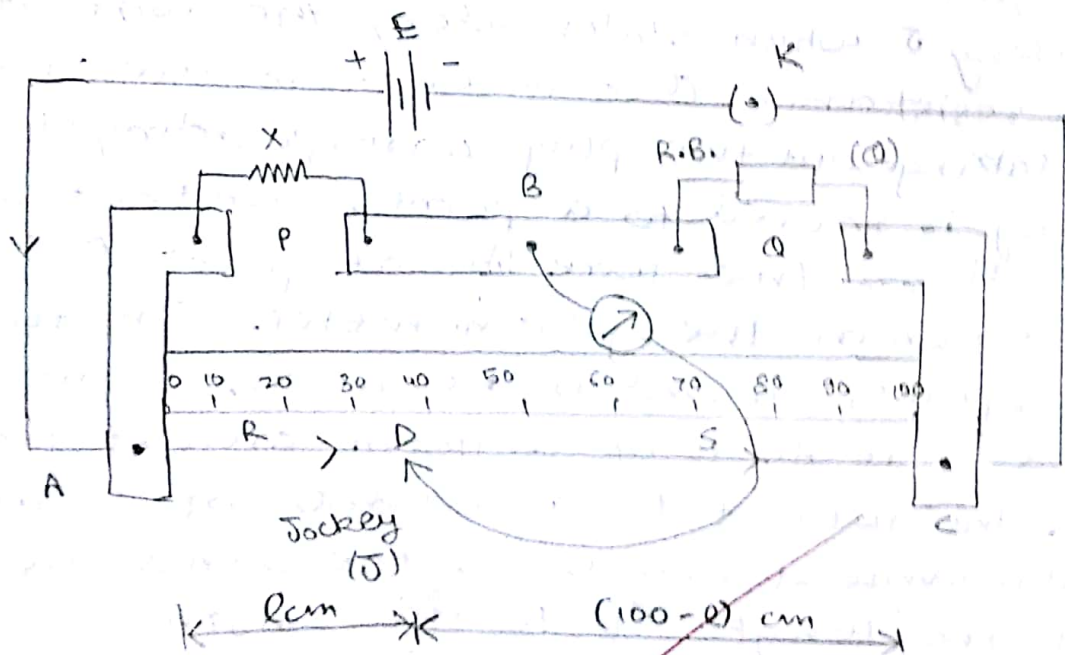 E
+ - K
X R.B. (Q)
B
P Q
0 10 20 30 40 50 60 70 80 90 100
R D S
A C
Jockey
(J)
l cm (100-l) cm